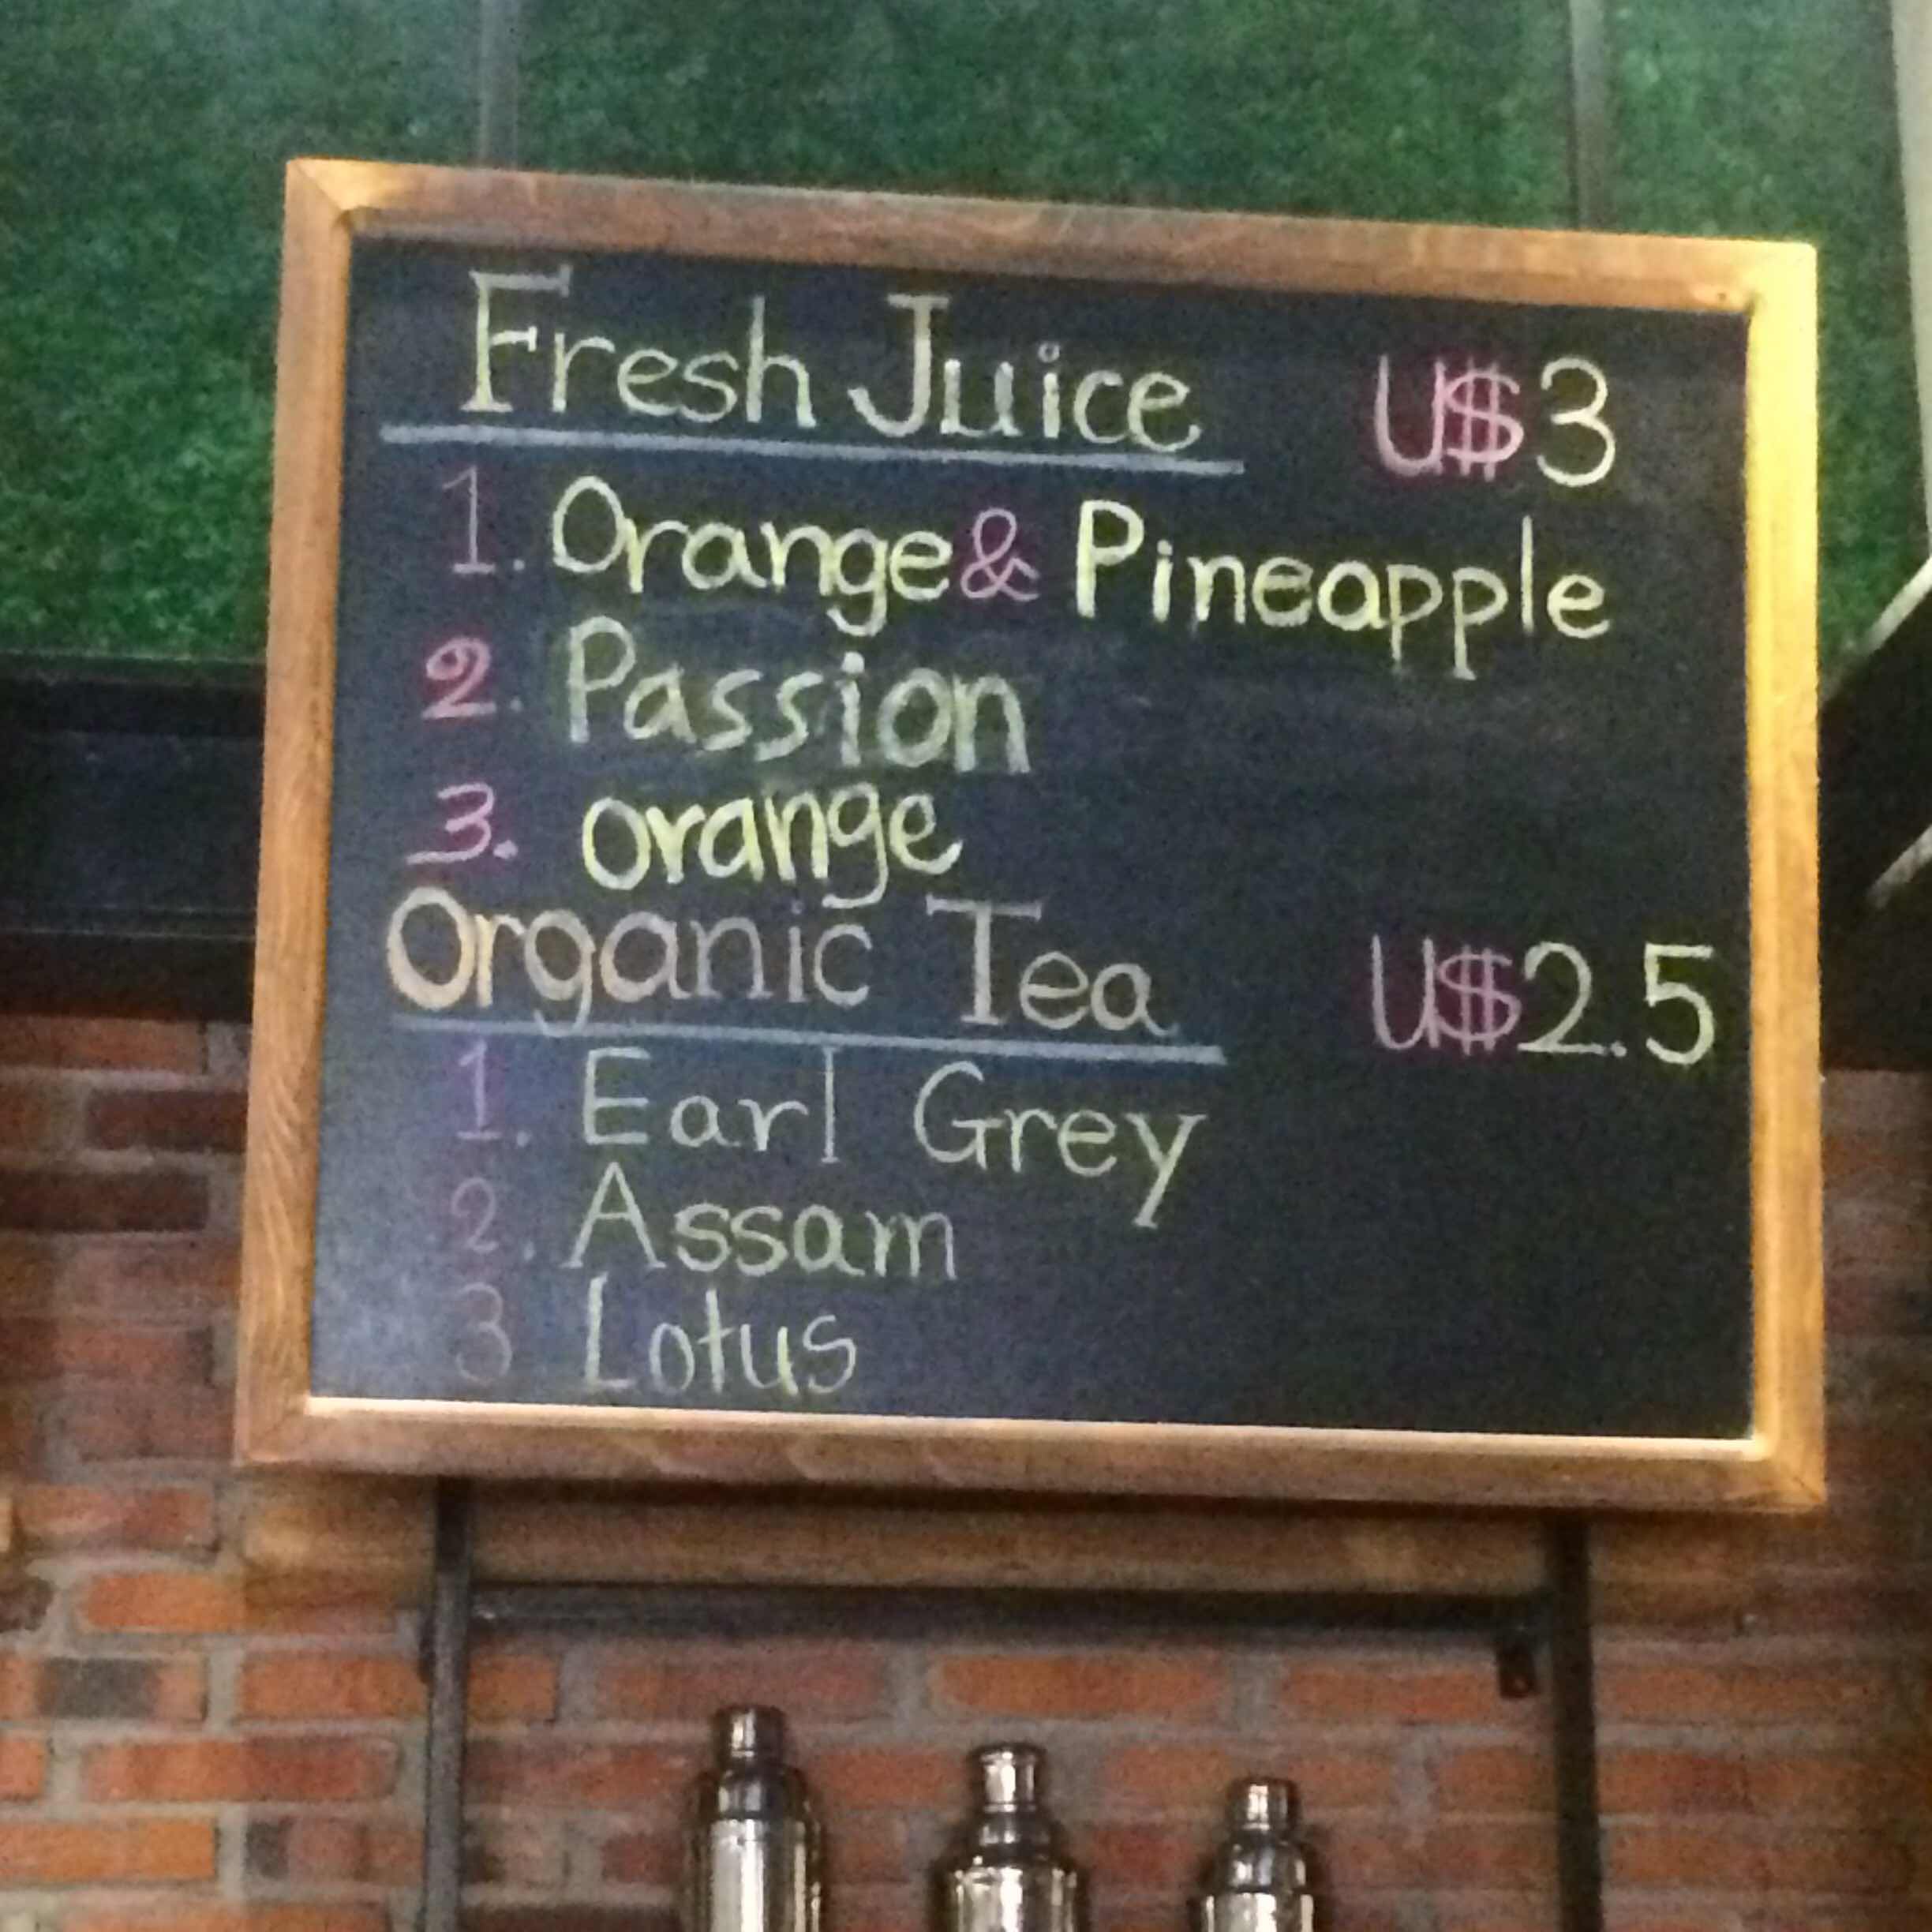 Fresh Juice U$3
1. Orange & Pineapple
2. Passion
3. orange
Organic Tea U$2.5
1. Earl Grey
2. Assam
3 Lotus